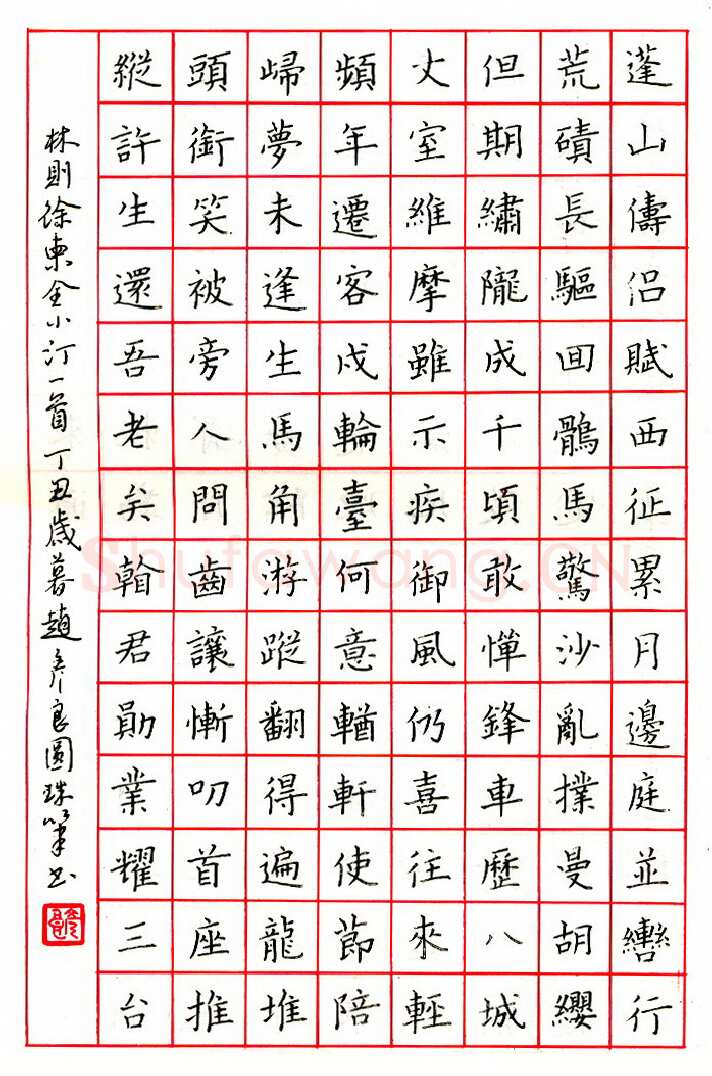 蓬山儔侶賦西征累月邊庭並轡行
荒磧長驅回鶻馬驚沙亂撲曼胡纓
但期繡隴成千頃敢憚鋒車歷八城
丈室維摩雖示疾御風仍喜往來輕
頻年遷客戍輪臺何意輶軒使節陪
歸夢未逢生馬角游蹤翻得遍龍堆
頭銜笑被旁人問齒讓慚叨首座推
縱許生還吾老矣翰君勛業耀三台
林則徐柬全小汀一首丁丑歲暮趙彥良圓珠筆書
Shufawang.CN